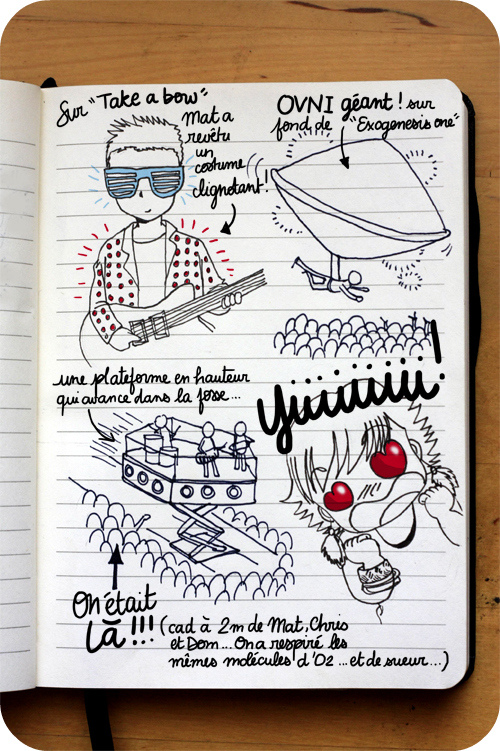 Sur "Take a bow"
Mat a
revêtu
un
costume
clignotant!
OVNI géant! sur
fond de "Exogenesis one"
une plateforme en hauteur
qui avance dans la fosse...
Yiiiiiiii!
On était
Là!!! (cad à 2m de Mat, Chris
et Dom... On a respiré les
mêmes molécules d'O2 ... et de sueur...)